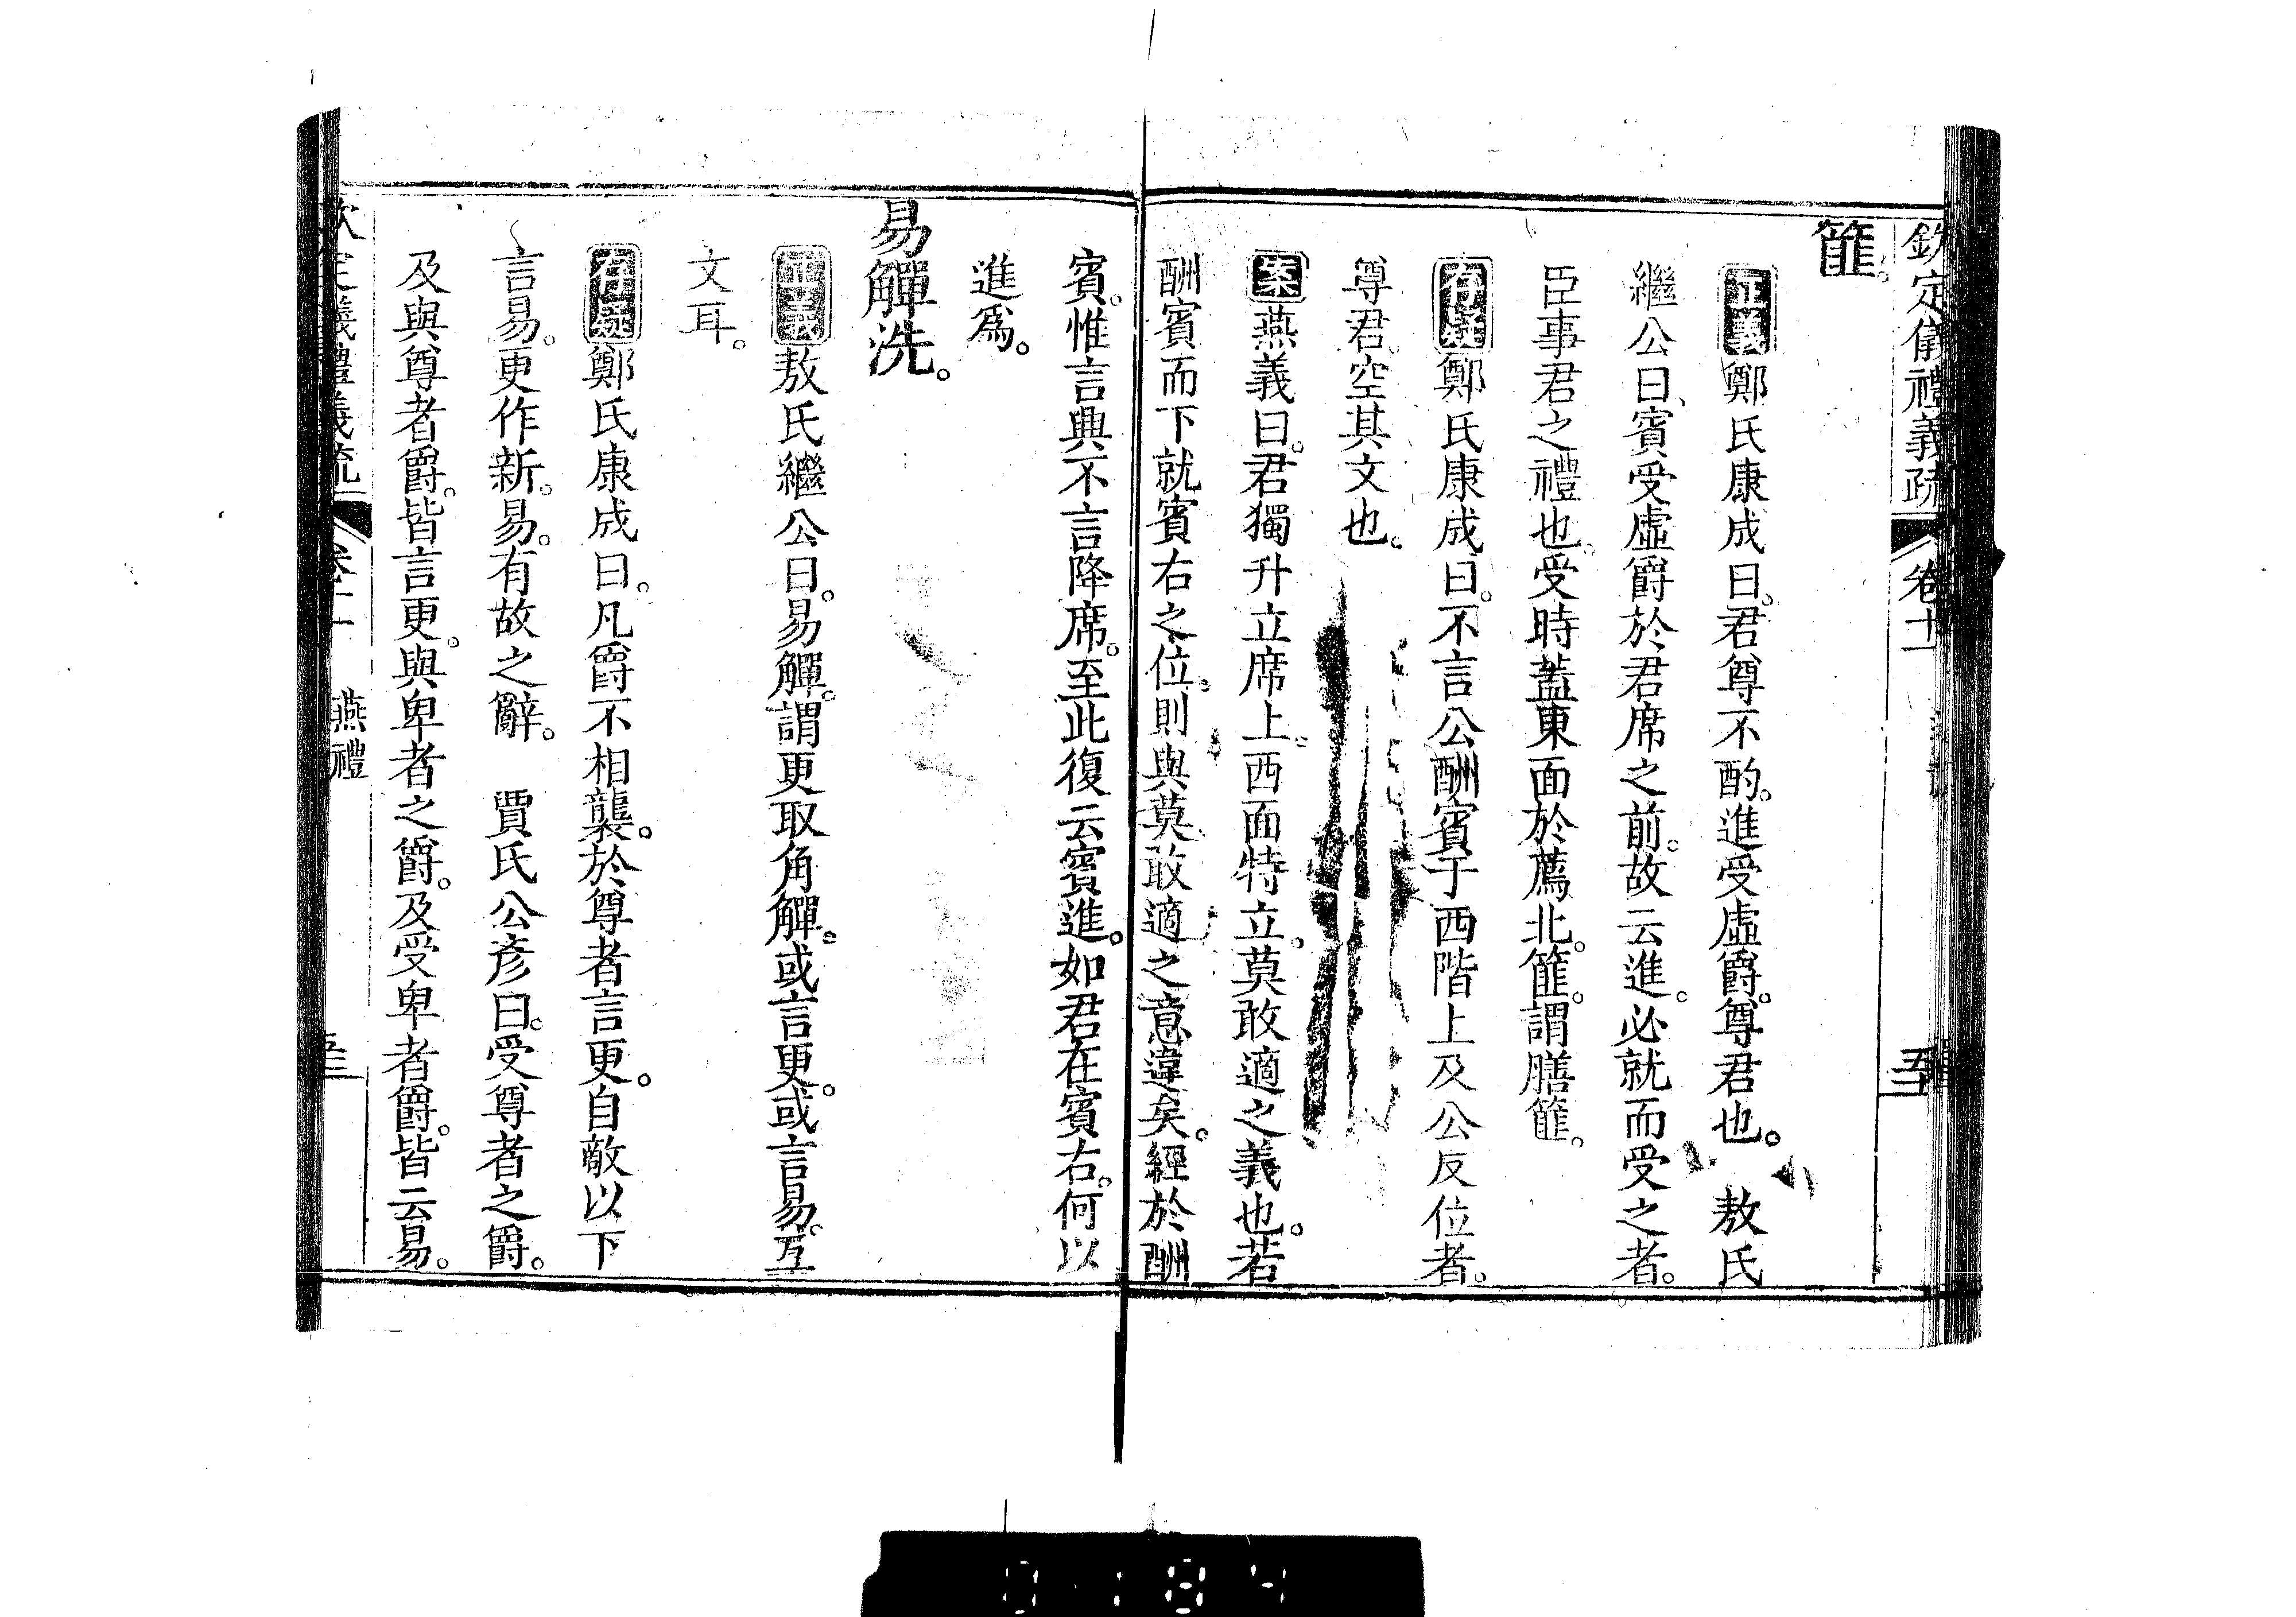 欽定儀禮義疏　卷十一
篚。
正義鄭氏康成曰。君尊不酌。進受虛爵。尊君也。　敖氏
繼公曰、賓受虛爵於君席之前。故云進。必就而受之者。
臣事君之禮也。受時蓋東面於薦北。篚。謂膳篚。
存疑鄭氏康成曰。不言公酬賓于西階上及公反位者。
尊君。空其文也。
案燕義曰。君獨升立席上。西面特立。莫敢適之義也。若
酬賓而下就賓右之位。則與莫敢適之意違矣。經於酬
賓。惟言興不言降席。至此復云賓進。如君在賓右。何以
進爲。
易觶洗。
正義敖氏繼公曰。易觶。謂更取角觶。或言更。或言易。互
文耳。
存疑鄭氏康成曰。凡爵不相襲。於尊者言更。自敵以下
言易。更作新。易。有故之辭。　賈氏公彥曰。受尊者之爵。
及與尊者爵。皆言更。與卑者之爵。及受卑者爵。皆云易。
欽定儀禮義疏　卷十一　燕禮
0184